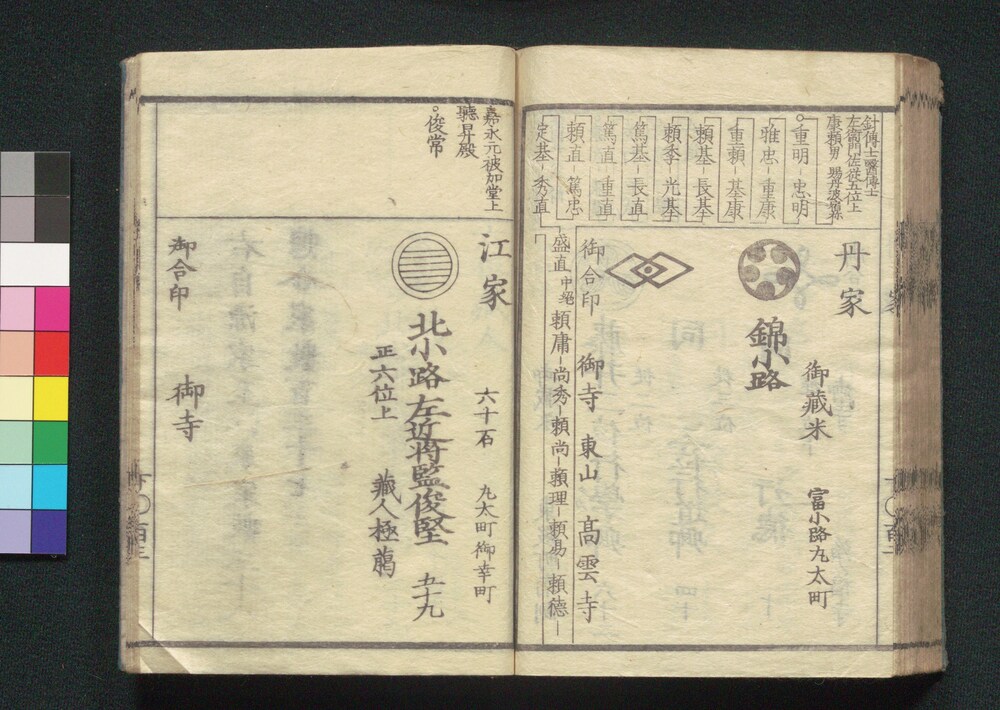 針博士醫博士
左衛門佐從五位上
康頼男 賜丹波宿祢
重明-忠明
雅忠-重康
重頼-基康
頼基-長基
頼季-光基
篤基-長直
篤直-重直
頼直-篤忠
定基-秀直
盛直 中絶 頼庸-尚秀-頼尚-頼理-頼易-頼德-
丹家
御藏米 富小路丸太町
錦小路
御合印 御寺 東山 髙雲寺
嘉永元被加堂上
聽昇殿
俊常
江家
六十石 丸太町御幸町
北小路左近將監俊堅 五十九
正六位上 藏人極﨟
御合印 御寺
下〇百三